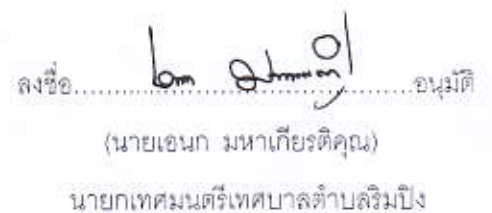 ลงชื่อ....................................................อนุมัติ
(นายเอนก มหาเกียรติคุณ)
นายกเทศมนตรีเทศบาลตำบลริมปิง